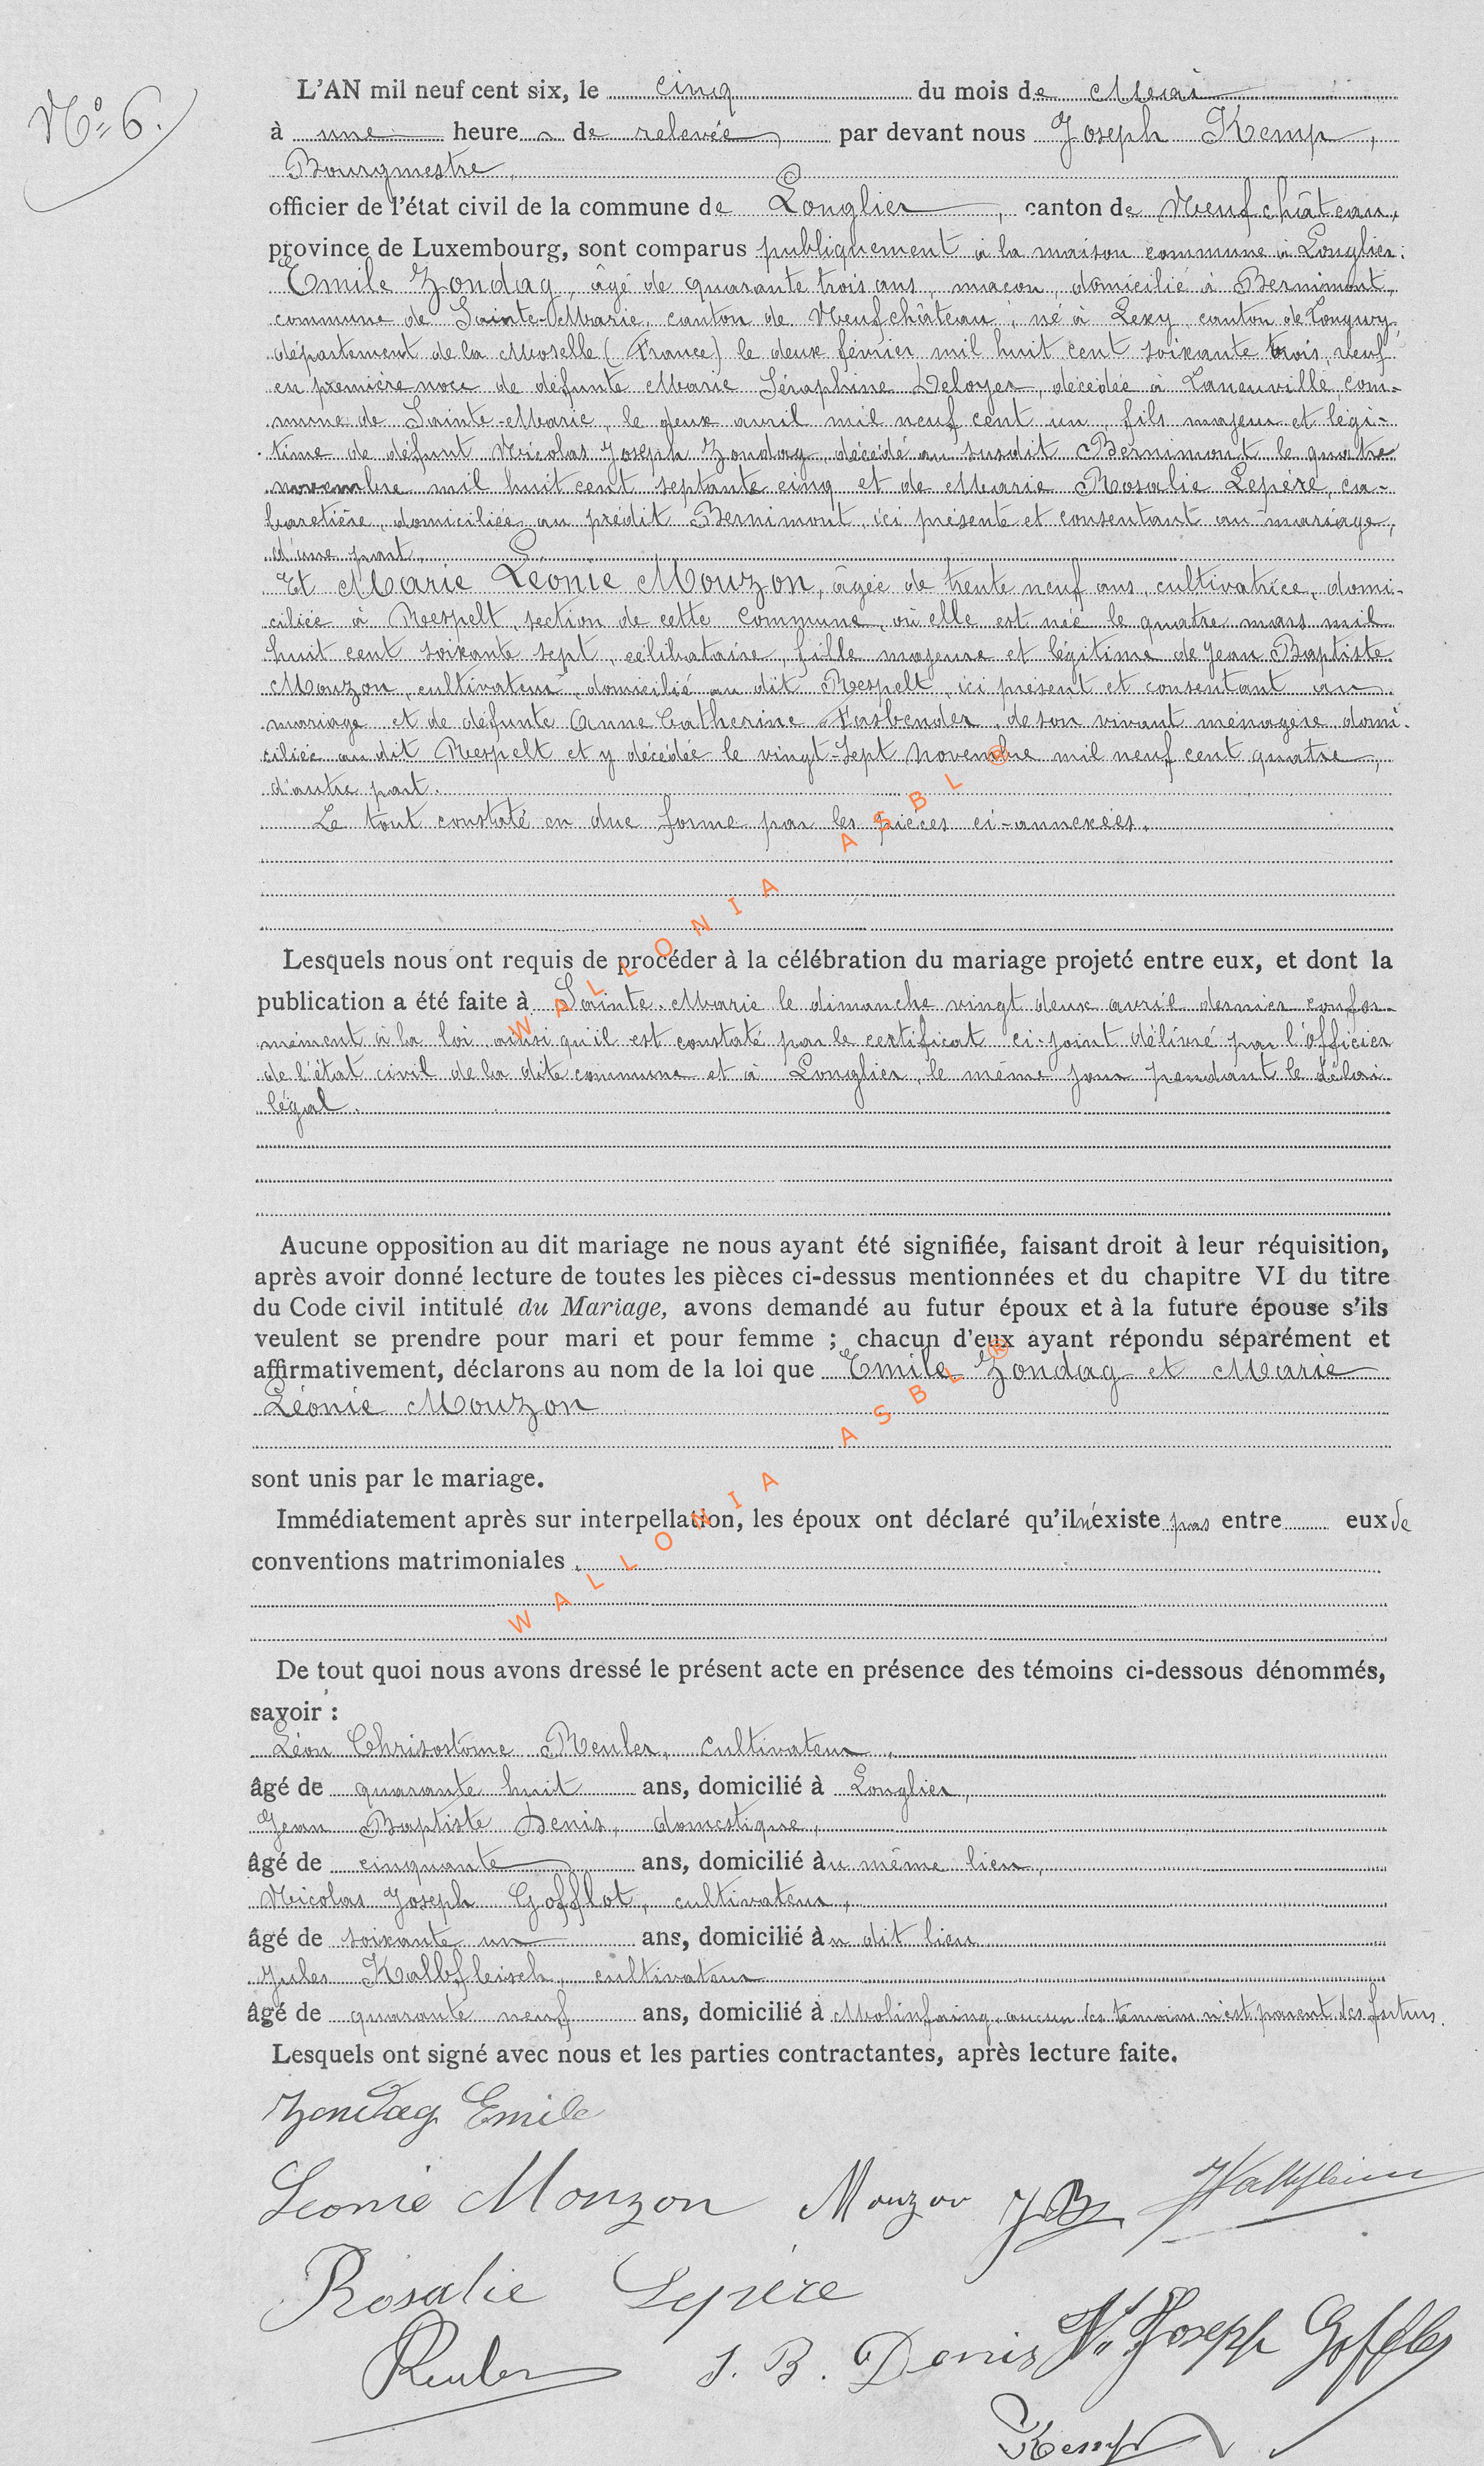 N° 6.
L'AN mil neuf cent six, le cinq du mois de Mai
à une heure de relevée, par devant nous Joseph Kemp,
Bourgmestre,
officier de l'état civil de la commune de Longlier, canton de Neufchâteau,
province de Luxembourg, sont comparus publiquement à la maison commune à Longlier:
Emile Zondag, âgé de quarante trois ans, maçon, domicilié à Bernimont,
commune de Sainte-Marie, canton de Neufchâteau, né à Lexy, canton de Longwy,
département de la Moselle (France) le deux février mil huit cent soixante trois, veuf
en première noce de défunte Marie Séraphine Deloyer, décédée à Laneuville, com-
mune de Sainte-Marie, le deux avril mil neuf cent un, fils majeur et légi-
time de défunt Nicolas Joseph Zondag, décédé au susdit Bernimont le quatre
novembre mil huit cent septante cinq et de Marie Rosalie Lepère, ca-
baretière, domiciliée au prédit Bernimont, ici présente et consentant au mariage,
d'une part,
Et Marie Léonie Mouzon, âgée de trente neuf ans, cultivatrice, domi-
ciliée à Respelt, section de cette commune, où elle est née le quatre mars mil
huit cent soixante sept, célibataire, fille majeure et légitime de Jean Baptiste
Mouzon, cultivateur, domicilié au dit Respelt, ici présent et consentant au
mariage et de défunte Anne Catherine Fasbender, de son vivant ménagère domi-
ciliée au dit Respelt et y décédée le vingt-sept novembre mil neuf cent quatre,
d'autre part.
Le tout constaté en due forme par les pièces ci-annexées.
Lesquels nous ont requis de procéder à la célébration du mariage projeté entre eux, et dont la
publication a été faite à Sainte-Marie le dimanche vingt deux avril dernier confor-
mément à la loi ainsi qu'il est constaté par le certificat ci-joint délivré par l'officier
de l'état civil de la dite commune et à Longlier, le même jour pendant le délai
légal.
Aucune opposition au dit mariage ne nous ayant été signifiée, faisant droit à leur réquisition,
après avoir donné lecture de toutes les pièces ci-dessus mentionnées et du chapitre VI du titre
du Code civil intitulé du Mariage, avons demandé au futur époux et à la future épouse s'ils
veulent se prendre pour mari et pour femme ; chacun d'eux ayant répondu séparément et
affirmativement, déclarons au nom de la loi que Emile Zondag et Marie
Léonie Mouzon
sont unis par le mariage.
Immédiatement après sur interpellation, les époux ont déclaré qu'il n'existe pas entre eux de
conventions matrimoniales.
De tout quoi nous avons dressé le présent acte en présence des témoins ci-dessous dénommés,
savoir :
Léon Chrisostome Reuler, cultivateur,
âgé de quarante huit ans, domicilié à Longlier,
Jean Baptiste Denis, domestique,
âgé de cinquante ans, domicilié au même lieu,
Nicolas Joseph Gofflot, cultivateur,
âgé de soixante un ans, domicilié au dit lieu
Jules Kalbfleisch, cultivateur
âgé de quarante neuf ans, domicilié à Molinfaing, aucun des témoins n'est parent des futurs.
Lesquels ont signé avec nous et les parties contractantes, après lecture faite.
Zondag Emile
Leonie Mouzon Mouzon JB
Rosalie Lepère
Reuler J. B. Denis N. Joseph Gofflot
Kemp
WALLONIA ASBL ®
WALLONIA ASBL ®